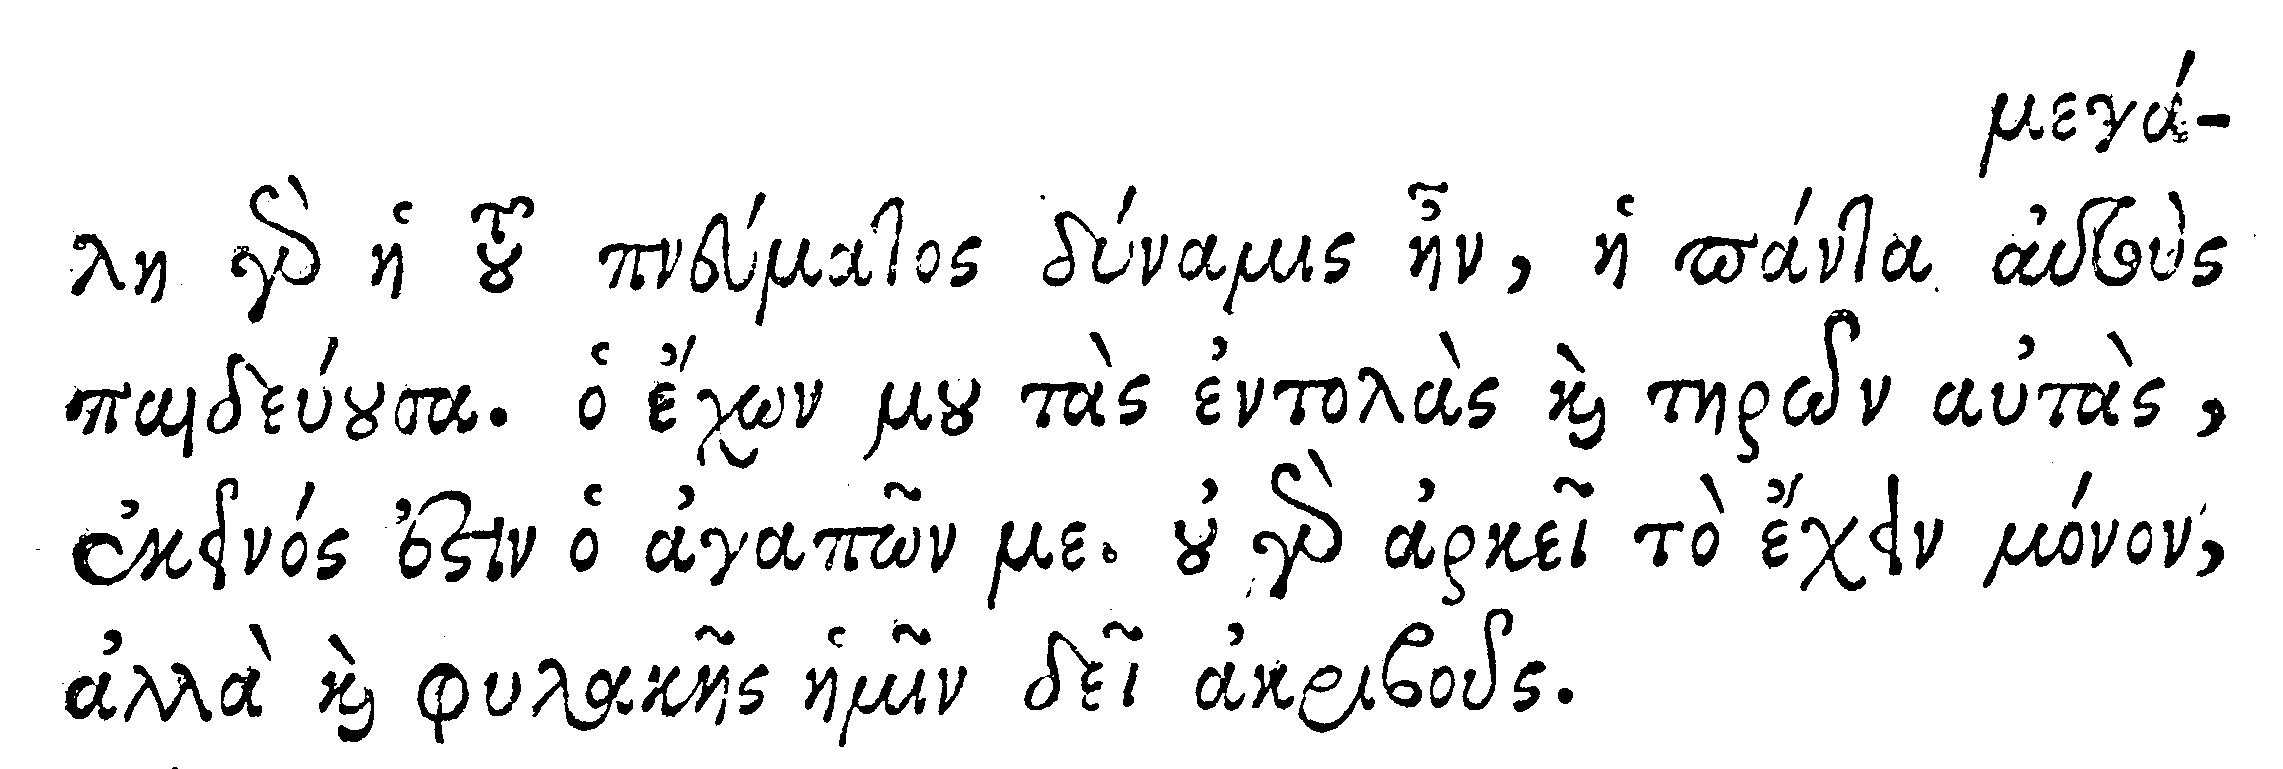 μεγά-
λη γὰρ ἡ τοῦ πνεύματος δύναμις ἦν, ἡ πάντα αὐτοὺς
παιδεύουσα. ὁ ἔχων μου τὰς ἐντολὰς καὶ τηρῶν αὐτὰς,
ἐκεῖνός ἐστιν ὁ ἀγαπῶν με. οὐ γὰρ ἀρκεῖ τὸ ἔχειν μόνον,
ἀλλὰ καὶ φυλακῆς ἡμῖν δεῖ ἀκριβοῦς.